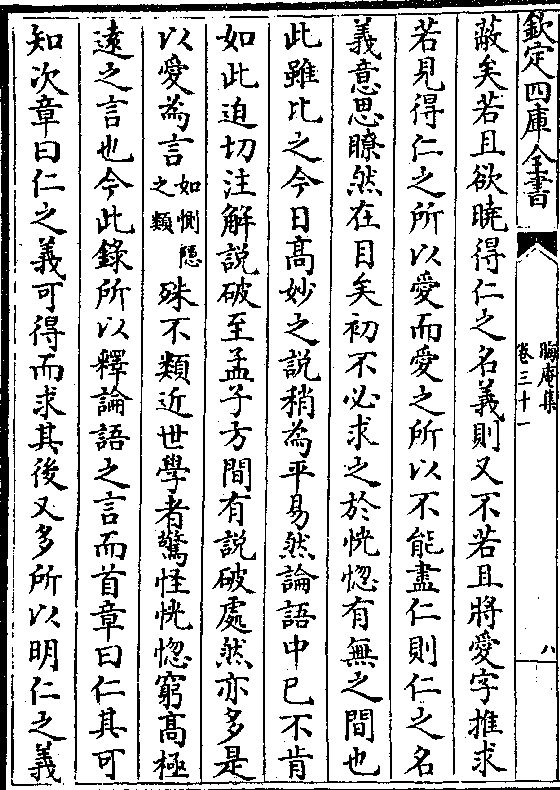 欽定四庫全書
晦庵集
卷三十一
八
蔽矣若且欲曉得仁之名義則又不若且將愛字推求
若見得仁之所以愛而愛之所以不能盡仁則仁之名
義意思瞭然在目矣初不必求之於恍惚有無之間也
此雖比之今日髙妙之說稍為平易然論語中已不肯
如此迫切注解說破至孟子方間有說破處然亦多是
以愛為言如惻隱之類殊不類近世學者驚怪恍惚窮髙極
逺之言也今此錄所以釋論語之言而首章曰仁其可
知次章曰仁之義可得而求其後又多所以明仁之義